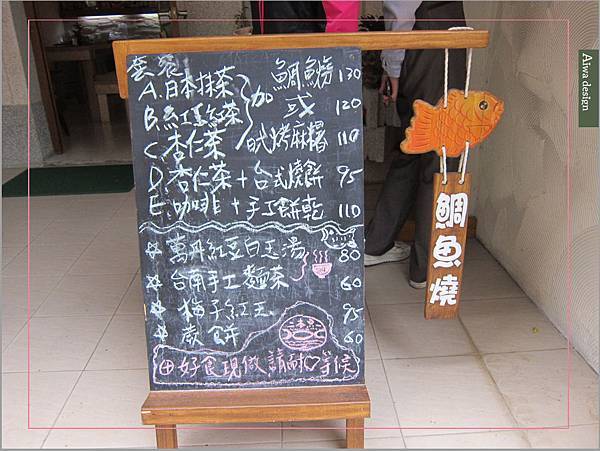 套餐
A.日本抹茶 鯛魚燒 130
B.紅玉紅茶 加 或 120
C.杏仁茶 日式烤麻糬 110
D.杏仁茶+台式燒餅 95
E.咖啡+手工餅乾 110
萬丹紅豆白玉湯 80
台南手工麵茶 60
梅子紅玉 95
蕨餅 60
好食現做請耐♡等候
鯛魚燒
Aiwa design